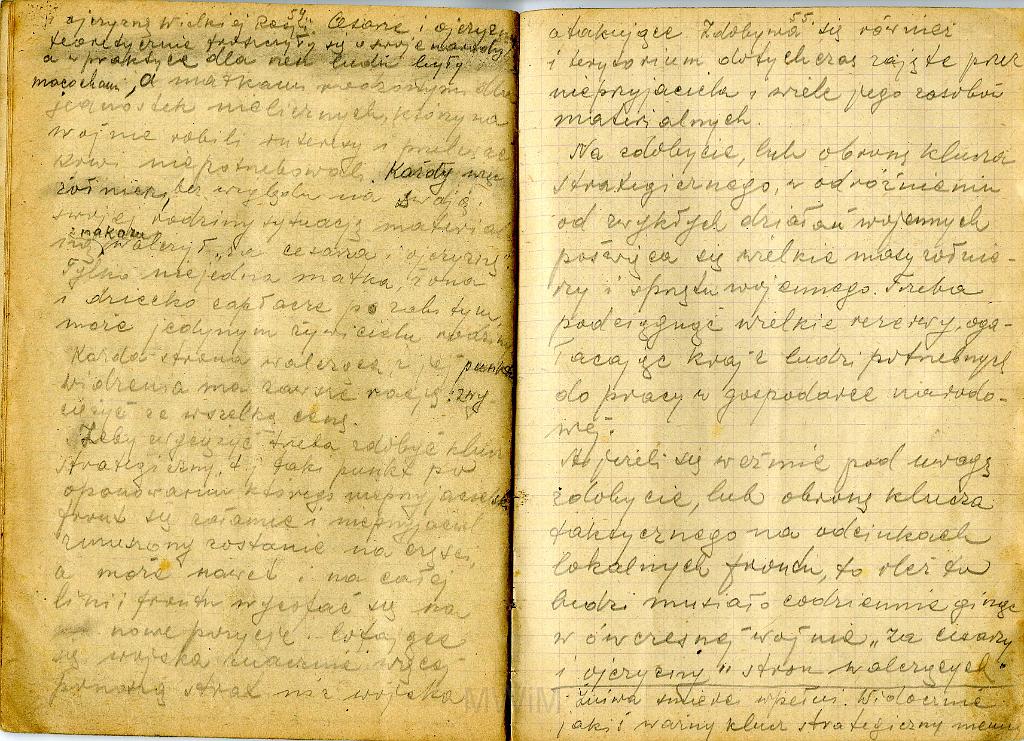 54.
i ojczyzną wielkiej Rosji. Cesarze i ojczyzny
teoretycznie troszczyły się o swoje narody
a w praktyce dla nich ludu były
macochami, a matkami rodzonymi dla
jednostek nielicznych, którzy na
wojnie robili interesy i przelewać
krwi nie potrzebowali. Każdy
żołnierz, bez względu na swoją
swojej rodziny sytuację material
ną walczył „za cesarza i ojczyznę"
z nakazu
Tylko niejedna matka, żona
i dziecko zapłacze po zabitym,
może jedynym żywicielu rodziny
Każda strona walcząca z jej punktu
widzenia ma zawsze rację: zwy-
ciężyć za wszelką cenę.
Żeby zwyciężyć trzeba zdobyć klucz
strategiczny, t.j. taki punkt po
opanowaniu którego nieprzyjacielski
front się załamie i nieprzyjaciel
zmuszony zostanie na części,
a może nawet i na całej
linii frontu wycofać się na
nowe pozycje. Cofające
się wojska znacznie więcej
ponoszą strat niż wojska
55.
atakujące. Zdobywa się również
i terytorium dotychczas zajęte przez
nieprzyjaciela i wiele jego zasobów
materialnych.
Na zdobycie, lub obronę klucza
strategicznego, w odróżnieniu
od zwykłych działań wojennych
poświęca się wielkie masy żołnie-
rzy i sprzętu wojennego. Trzeba
podciągnąć wielkie rezerwy, oga-
łacając kraj z ludzi potrzebnych
do pracy w gospodarce narodo-
wej.
A jeżeli się weźmie pod uwagę
zdobycie, lub obronę klucza
taktycznego na odcinkach
lokalnych frontu, to ileż to
ludzi musiało codziennie ginąć
w ówczesnej wojnie „Za cesarzy
i ojczyzny" stron walczących.
żniwa śmierci w pełni. Widocznie
jakiś ważny klucz strategiczny
MWM